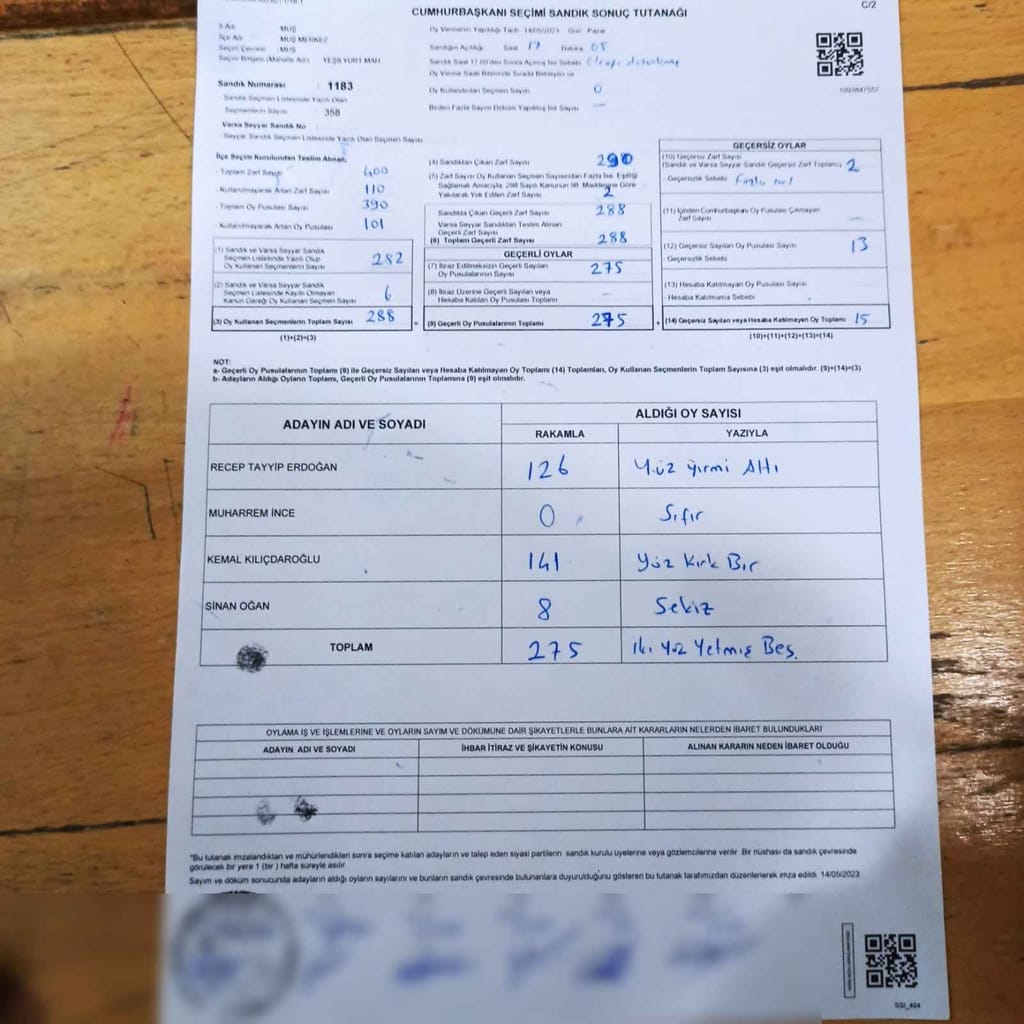 C/2
CUMHURBAŞKANI SEÇİMİ SANDIK SONUÇ TUTANAĞI
İl Adı : MUŞ
İlçe Adı : MUŞ MERKEZ
Seçim Çevresi : MUŞ
Seçim Bölgesi (Mahalle Adı) : YEŞİLYURT MAH.
Sandık Numarası : 1183
Sandık Seçmen Listesinde Yazılı Olan
Seçmenlerin Sayısı : 358
Varsa Seyyar Sandık No
Seyyar Sandık Seçmen Listesinde Yazılı Olan Seçmen Sayısı
Oy Vermenin Yapıldığı Tarih : 14/05/2023 Gün : Pazar
Sandığın Açıldığı Saat 17 Dakika 05
Sandık Saat 17:00'den Sonra Açılmış İse Sebebi
Oy Verme Saati Bitiminde Sırada Bekleyen ve
Oy Kullandırılan Seçmen Sayısı 0
Birden Fazla Sayım Döküm Yapılmış İse Sayısı —
1093847557
İlçe Seçim Kurulundan Teslim Alınan;
- Toplam Zarf Sayısı 400
- Kullanılmayarak Artan Zarf Sayısı 110
- Toplam Oy Pusulası Sayısı 390
- Kullanılmayarak Artan Oy Pusulası 101
(1) Sandık ve Varsa Seyyar Sandık
Seçmen Listesinde Yazılı Olup
Oy Kullanan Seçmenlerin Sayısı 282
(2) Sandık ve Varsa Seyyar Sandık
Seçmen Listesinde Kayıtlı Olmayan
Kanun Gereği Oy Kullanan Seçmen Sayısı 6
(3) Oy Kullanan Seçmenlerin Toplam Sayısı 288
(1)+(2)=(3)
(4) Sandıktan Çıkan Zarf Sayısı 290
(5) Zarf Sayısı Oy Kullanan Seçmen Sayısından Fazla İse, Eşitliği
Sağlamak Amacıyla, 298 Sayılı Kanunun 98. Maddesine Göre
Yakılarak Yok Edilen Zarf Sayısı 2
Sandıkta Çıkan Geçerli Zarf Sayısı 288
Varsa Seyyar Sandıktan Teslim Alınan
Geçerli Zarf Sayısı
(6) Toplam Geçerli Zarf Sayısı 288
GEÇERLİ OYLAR
(7) İtiraz Edilmeksizin Geçerli Sayılan
Oy Pusulalarının Sayısı 275
(8) İtiraz Üzerine Geçerli Sayılan veya
Hesaba Katılan Oy Pusulası Toplamı —
= (9) Geçerli Oy Pusulalarının Toplamı 275
GEÇERSİZ OYLAR
(10) Geçersiz Zarf Sayısı
(Sandık ve Varsa Seyyar Sandık Geçersiz Zarf Toplamı) 2
- Geçersizlik Sebebi
(11) İçinden Cumhurbaşkanı Oy Pusulası Çıkmayan
Zarf Sayısı —
(12) Geçersiz Sayılan Oy Pusulası Sayısı 13
- Geçersizlik Sebebi
(13) Hesaba Katılmayan Oy Pusulası Sayısı
- Hesaba Katılmama Sebebi
+ (14) Geçersiz Sayılan veya Hesaba Katılmayan Oy Toplamı 15
(10)+(11)+(12)+(13)=(14)
NOT:
a- Geçerli Oy Pusulalarının Toplamı (9) ile Geçersiz Sayılan veya Hesaba Katılmayan Oy Toplamı (14) Toplamları, Oy Kullanan Seçmenlerin Toplam Sayısına (3) eşit olmalıdır. (9)+(14)=(3)
b- Adayların Aldığı Oyların Toplamı, Geçerli Oy Pusulalarının Toplamına (9) eşit olmalıdır.
ADAYIN ADI VE SOYADI ALDIĞI OY SAYISI
RAKAMLA YAZIYLA
RECEP TAYYİP ERDOĞAN 126 Yüz Yirmi Altı
MUHARREM İNCE 0 Sıfır
KEMAL KILIÇDAROĞLU 141 Yüz Kırk Bir
SİNAN OĞAN 8 Sekiz
TOPLAM 275 İki Yüz Yetmiş Beş.
OYLAMA İŞ VE İŞLEMLERİNE VE OYLARIN SAYIM VE DÖKÜMÜNE DAİR ŞİKAYETLERLE BUNLARA AİT KARARLARIN NELERDEN İBARET BULUNDUKLARI
ADAYIN ADI VE SOYADI İHBAR İTİRAZ VE ŞİKAYETİN KONUSU ALINAN KARARIN NEDEN İBARET OLDUĞU
*Bu tutanak imzalandıktan ve mühürlendikten sonra seçime katılan adayların ve talep eden siyasi partilerin sandık kurulu üyelerine veya gözlemcilerine verilir. Bir nüshası da sandık çevresinde
görülecek bir yere 1 (bir) hafta süreyle asılır.
Sayım ve döküm sonucunda adayların aldığı oyların sayılarını ve bunların sandık çevresinde bulunanlara duyurulduğunu gösteren bu tutanak tarafımızdan düzenlenerek imza edildi. 14/05/2023
GSI_404